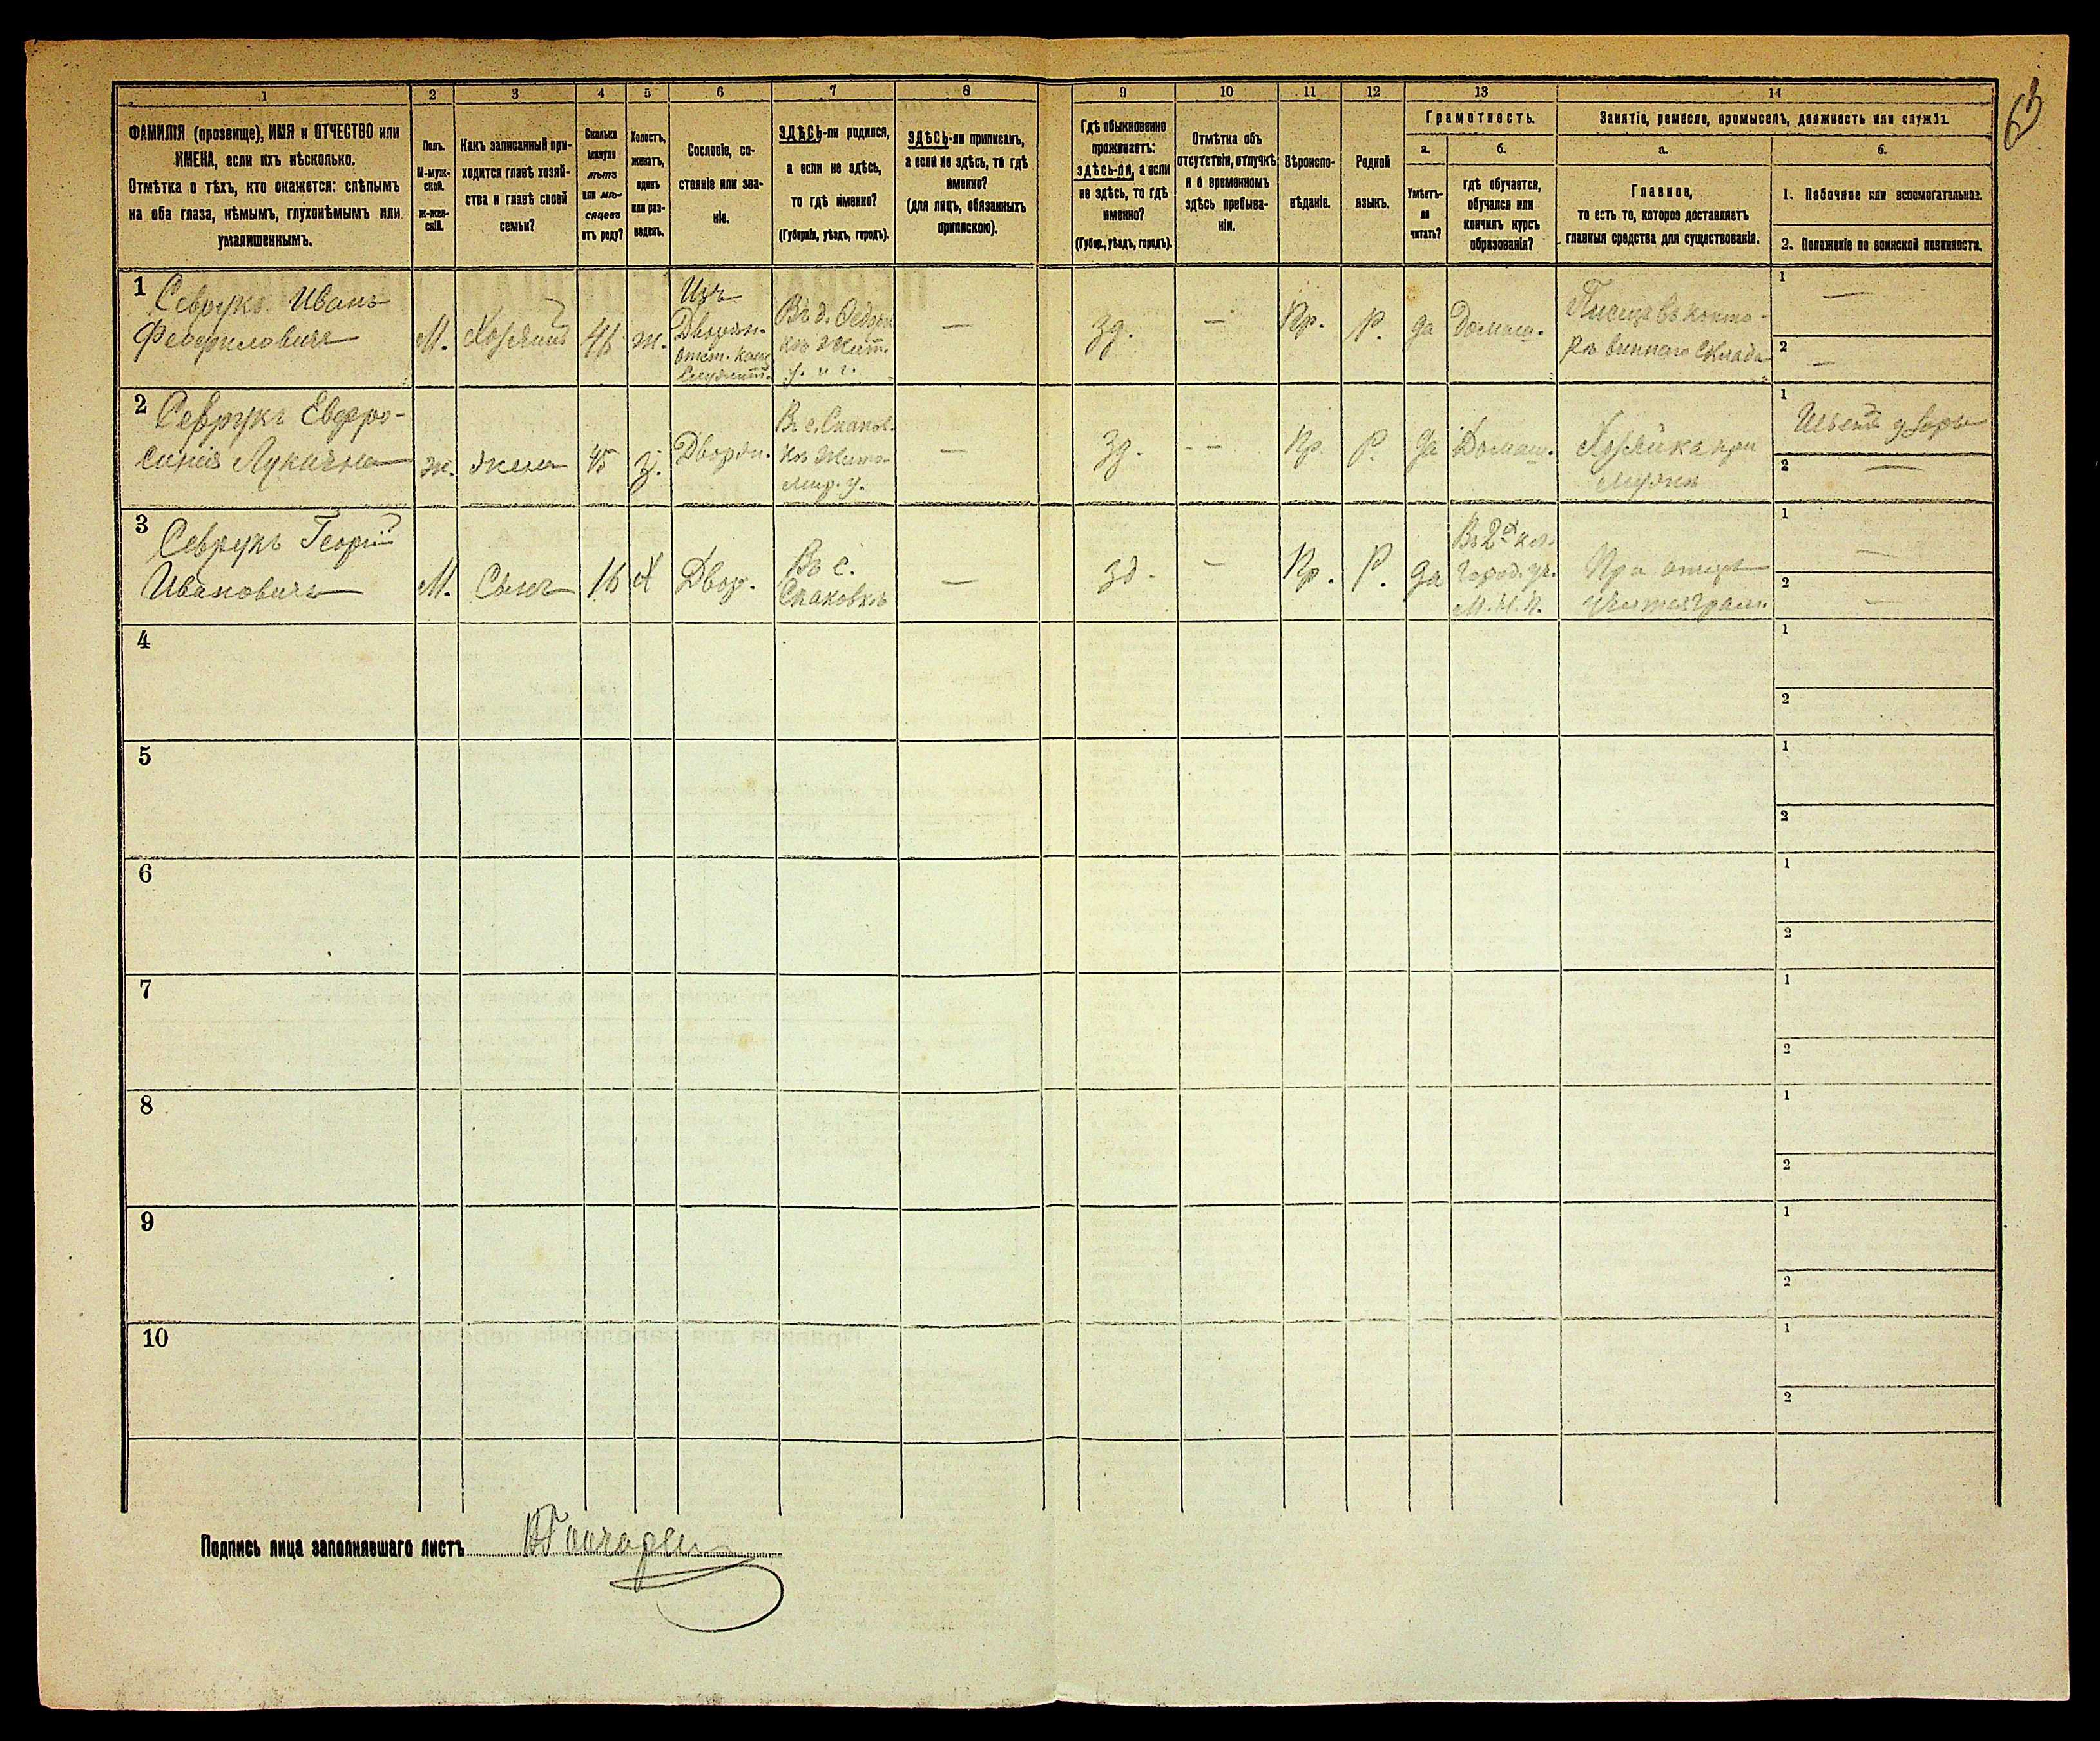 63
1 2 3 4 5 6 7 8 9 10 11 12 13 14
ФАМИЛІЯ (прозвище), ИМЯ и ОТЧЕСТВО или
ИМЕНА, если ихъ нѣсколько.
Отмѣтка о тѣхъ, кто окажется: слѣпымъ
на оба глаза, нѣмымъ, глухонѣмымъ или
умалишеннымъ.
Полъ.
М-муж-
ской.
ж-жен-
скій.
Какъ записанный при-
ходится главѣ хозяй-
ства и главѣ своей
семьи?
Сколько
минуло
лѣтъ
или мѣ-
сяцевъ
отъ роду?
Холостъ,
женатъ,
вдовъ
или раз-
веденъ.
Сословіе, со-
стояніе или зва-
ніе.
ЗДѢСЬ-ли родился,
а если не здѣсь,
то гдѣ именно?
(Губернія, уѣздъ, городъ).
ЗДѢСЬ-ли приписанъ,
а если не здѣсь, то гдѣ
именно?
(для лицъ, обязанныхъ
припискою).
Гдѣ обыкновенно
проживаетъ:
здѣсь-ли, а если
не здѣсь, то гдѣ
именно?
(Губер., уѣздъ, городъ).
Отмѣтка объ
отсутствіи, отлучкѣ
и о временномъ
здѣсь пребыва-
ніи.
Вѣроиспо-
вѣданіе.
Родной
языкъ.
Грамотность.
а.
Умѣетъ-
ли
читать?
б.
гдѣ обучается,
обучался или
кончилъ курсъ
образованія?
Занятіе, ремесло, промыселъ, должность или служба.
а.
Главное,
то есть то, которое доставляетъ
главныя средства для существованія.
б.
1. Побочное или вспомогательное.
2. Положеніе по воинской повинности.
1
Севрукъ Иванъ
Феофиловичъ
М.
Хозяинъ
46
ж.
Изъ
Дворян.
Въ д. Федор
ж Жит.
у. и г.
—
зд.
—
Пр.
Р.
да
Домаш.
Писецъ въ конто-
рѣ виннаго склада
1 —
2 —
2
Севрукъ Евфро-
синія Лукична
ж.
жена
45
з.
Дворян.
Въ с. Скаков.
кѣ Жито-
мир. у.
—
зд.
--
Пр.
Р.
да
Домаш.
Хозяйка при
мужѣ
1
2 —
3
Севрукъ Георгій
Ивановичъ
М.
Сынъ
16
Х
Двор.
Въ с.
Скаковкѣ
—
зд.
—
Пр.
Р.
да
Въ 2х кл.
город. уч.
М.Н.П.
При отцѣ
1 —
2 —
4
1
2
5
1
2
6
1
2
7
1
2
8
1
2
9
1
2
10
1
2
Подпись лица заполнявшаго листъ